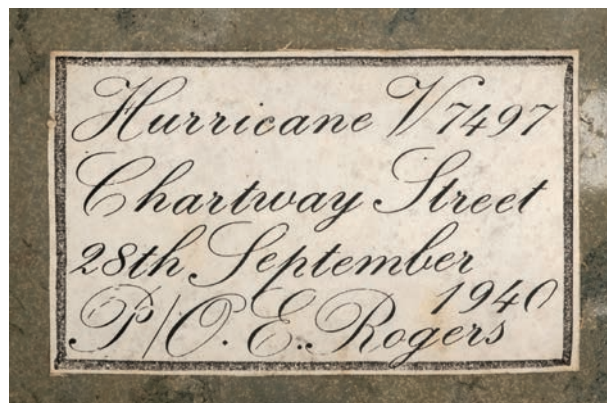 Hurricane V7497
Chartway Street
28th September
1940
P/O. E. Rogers